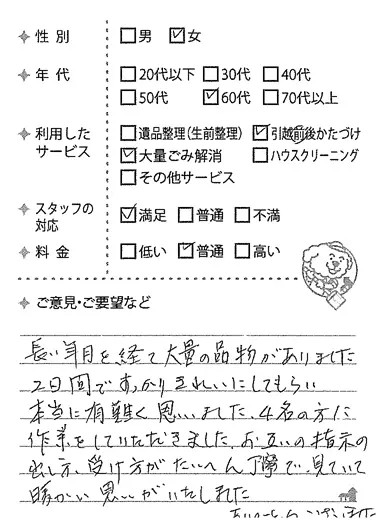 性別 □男 ☑女
年代 □20代以下 □30代 □40代
□50代 ☑60代 □70代以上
利用した
サービス
□遺品整理(生前整理) ☑引越前後かたづけ
☑大量ごみ解消 □ハウスクリーニング
□その他サービス
スタッフの
対応
☑満足 □普通 □不満
料金 □低い ☑普通 □高い
ご意見・ご要望など
長い年月を経て大量の品物がありました
2日間ですっかりきれいにしてもらい
本当に有難く思いました、4名の方に
作業をしていただきました、お互いの指示の
出し方、受け方がたいへん丁寧で、見ていて
暖かい思いがいたしました
ありがとうございました